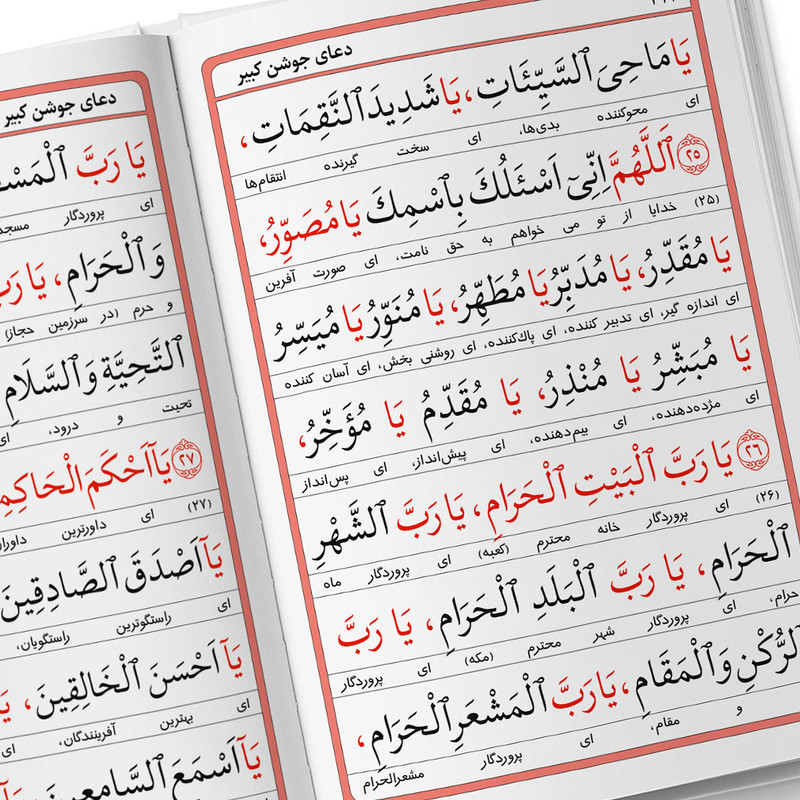 دعای جوشن کبیر
يَا مَاحِىَ ٱلسَّيِّئَاتِ، يَا شَدِيدَ ٱلنَّقِمَاتِ،
ای محوکننده بدی‌ها، ای سخت گیرنده انتقام‌ها
۲۵ اَللَّهُمَّ اِنِّىٓ اَسْئَلُكَ بِٱسْمِكَ يَا مُصَوِّرُ،
(۲۵) خدایا از تو می خواهم به حق نامت، ای صورت آفرین
يَا مُقَدِّرُ، يَا مُدَبِّرُ يَا مُطَهِّرُ، يَا مُنَوِّرُ يَا مُيَسِّرُ
ای اندازه گیر، ای تدبیر کننده، ای پاك‌کننده، ای روشنی بخش، ای آسان کننده
يَا مُبَشِّرُ يَا مُنْذِرُ، يَا مُقَدِّمُ يَا مُؤَخِّرُ،
ای مژده‌دهنده، ای بیم‌دهنده، ای پیش‌انداز، ای پس‌انداز
۲۶ يَا رَبَّ ٱلْبَيْتِ ٱلْحَرَامِ، يَا رَبَّ ٱلشَّهْرِ
(۲۶) ای پروردگار خانه محترم (کعبه) ای پروردگار ماه
ٱلْحَرَامِ، يَا رَبَّ ٱلْبَلَدِ ٱلْحَرَامِ، يَا رَبَّ
حرام، ای پروردگار شهر محترم (مکه) ای پروردگار
ٱلرُّكْنِ وَٱلْمَقَامِ، يَا رَبَّ ٱلْمَشْعَرِ ٱلْحَرَامِ،
و مقام، ای پروردگار مشعرالحرام
دعای جوشن کبیر
يَا رَبَّ
ای پروردگار
وَٱلْحَرَامِ، يَا
و حرم (در سرزمین حجاز)
ٱلتَّحِيَّةِ وَٱلسَّلَامِ
تحیت و درود، ای
۲۷ يَآ اَحْكَمَ ٱلْحَاكِمِ
(۲۷) ای داورترین
يَآ اَصْدَقَ ٱلصَّادِقِينَ
ای راستگوترین راستگویان،
يَآ اَحْسَنَ ٱلْخَالِقِينَ،
ای بهترین آفرینندگان، ای
يَآ اَسْمَعَ ٱلسَّامِعِينَ